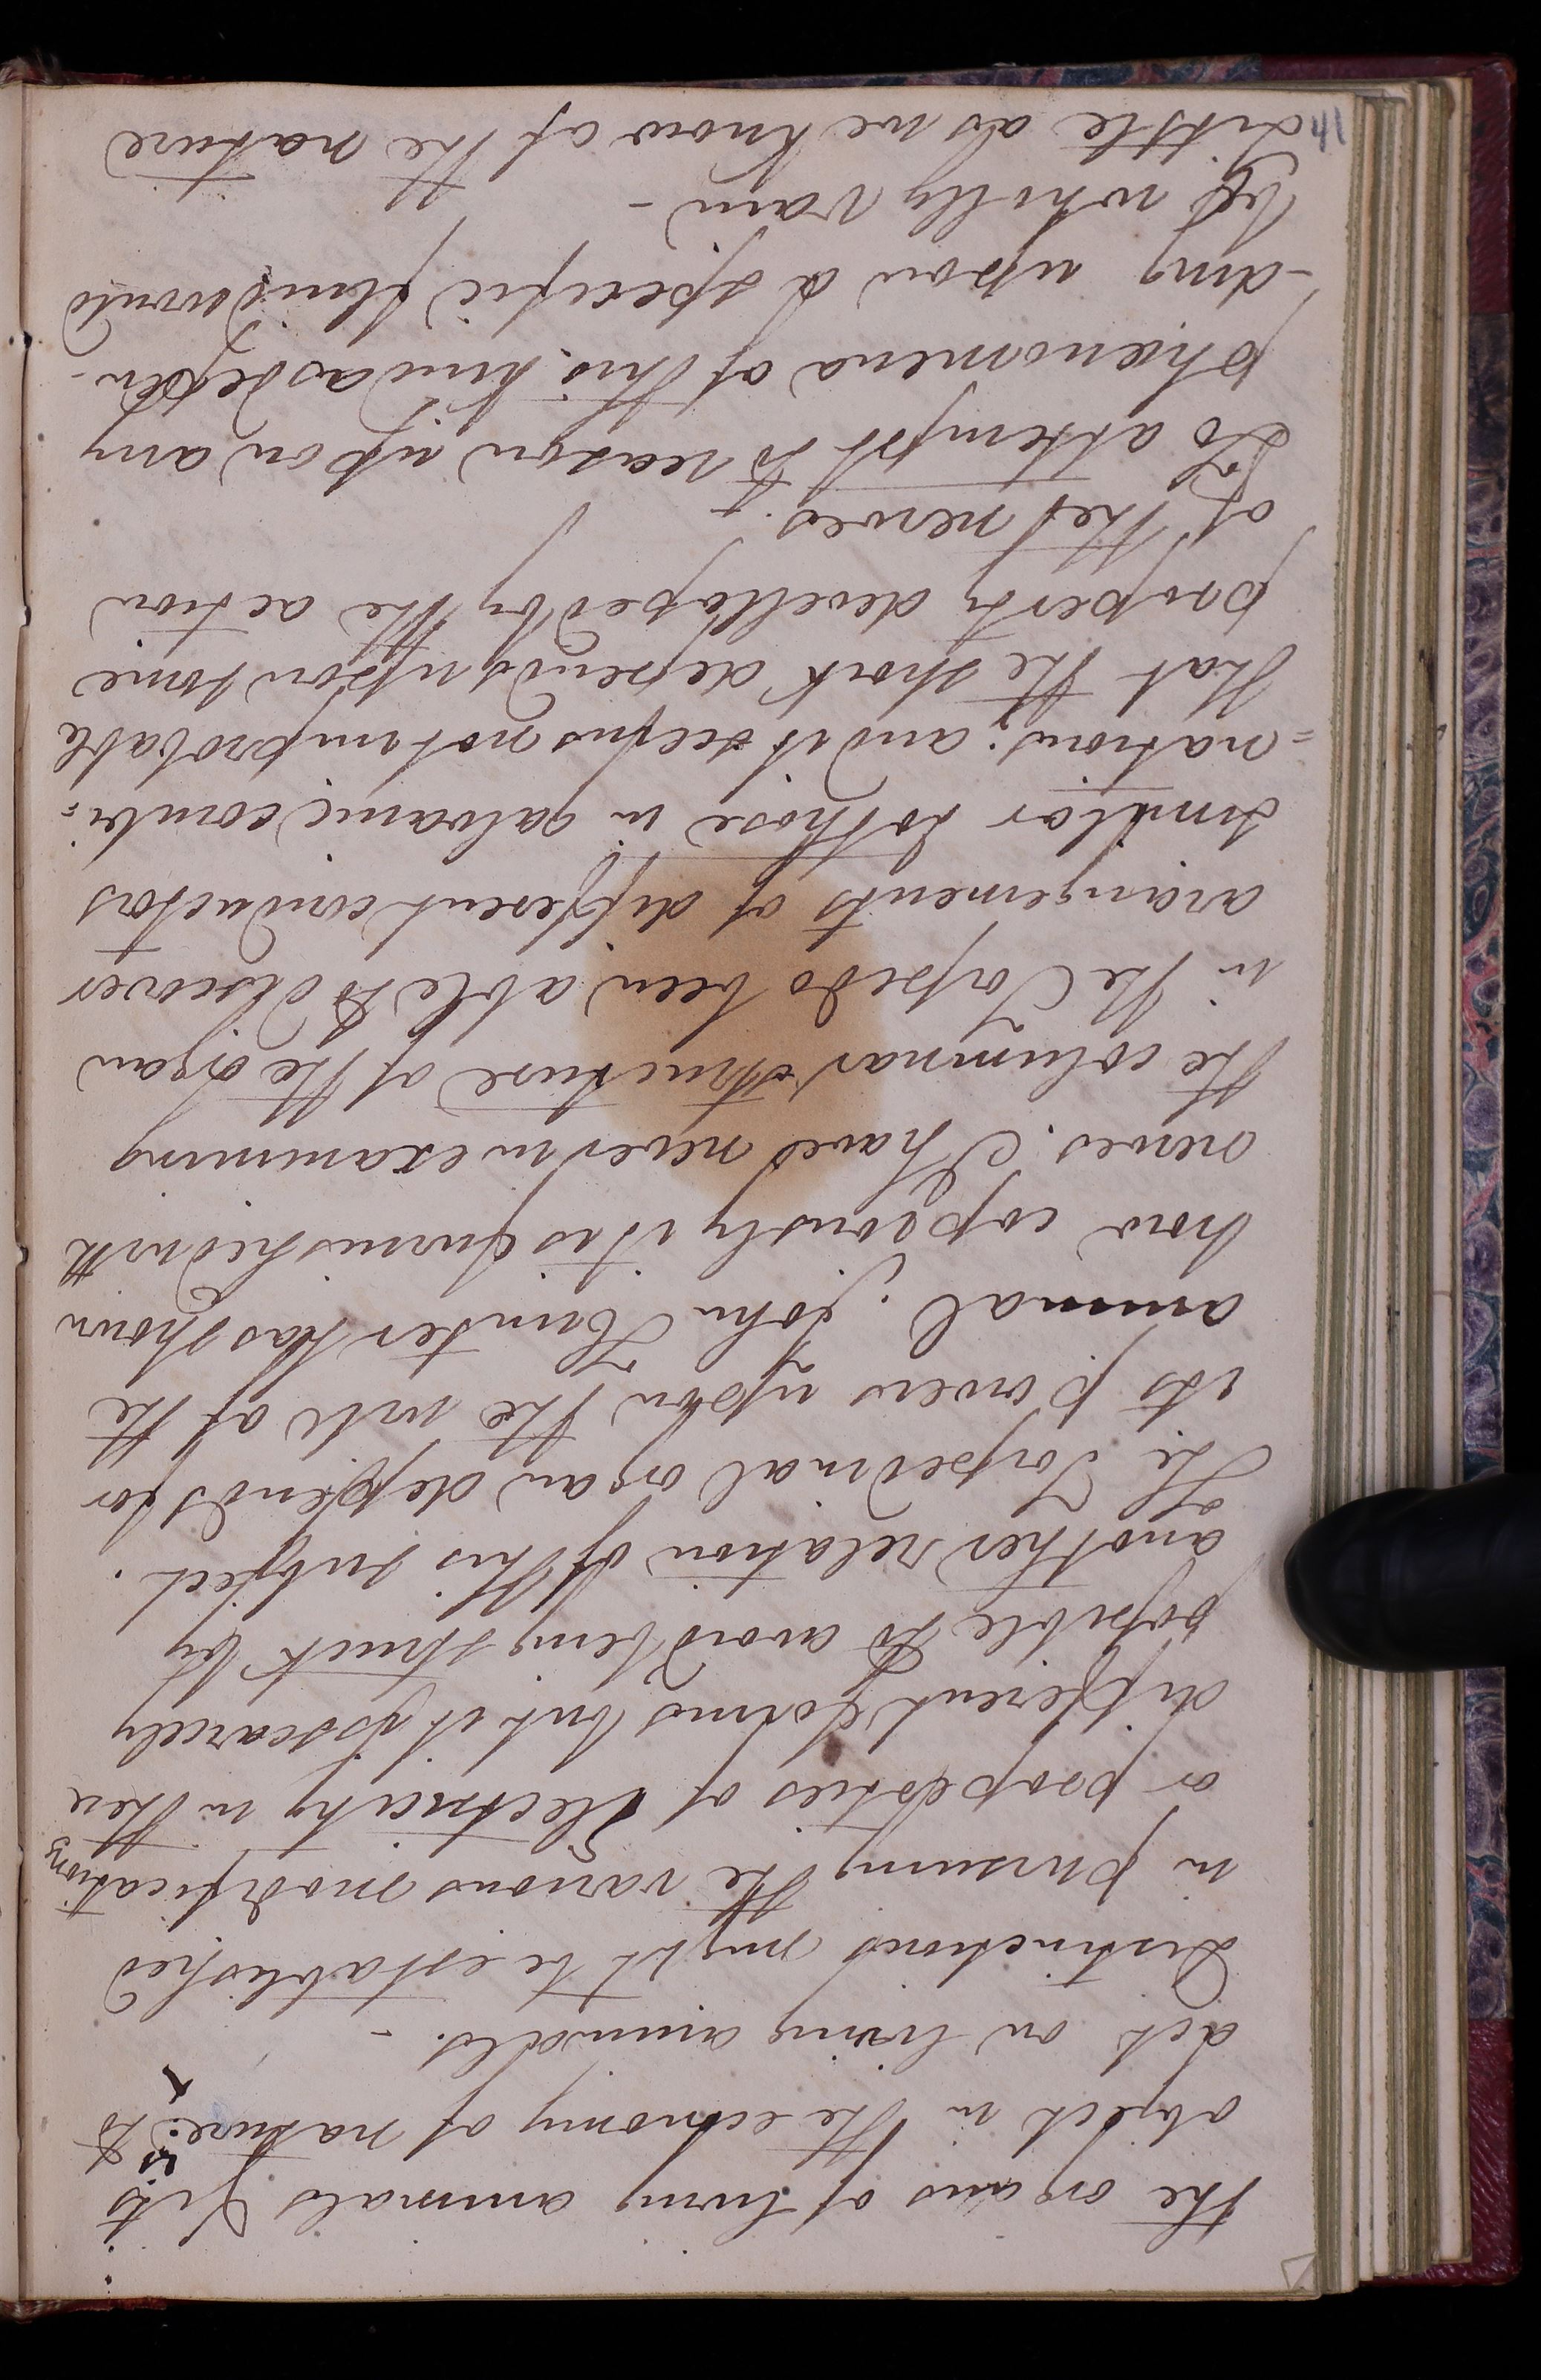 the organs of living animals & its
object in the economy of nature is to
act on living animals. -
Distinctions might be established
in pursuing the various modifications
or properties of Electricity in these
different forms but it is scarcely
possible to avoid being struck by
another relation of this subject.
The Torpedinal organ depends for
its powers upon the will of the
animal. John Hunter has shown
how copiously it is furnished with
nerves. I have never in examining
the columnar structure of the organ
in the Torpedo been able to discover
arangements of different conductors
similar to those in galvanic combi=
=nations; and it seems not improbable
that the shock depends upon some
property developed by the action
of the nerves. -
To attempt to reason upon any
phænomena of this kind as depen-
-ding upon a specific fluid would
be wholly vain -
Little as we know of the nature
41